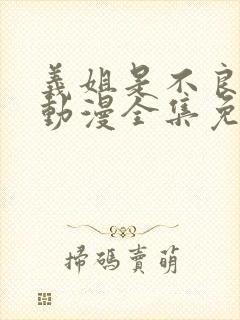 義姐是不良
動漫全集免
掃碼賣萌